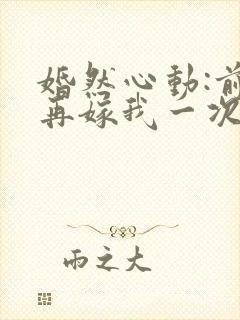 婚然心動:前
再嫁我一次
雨之大